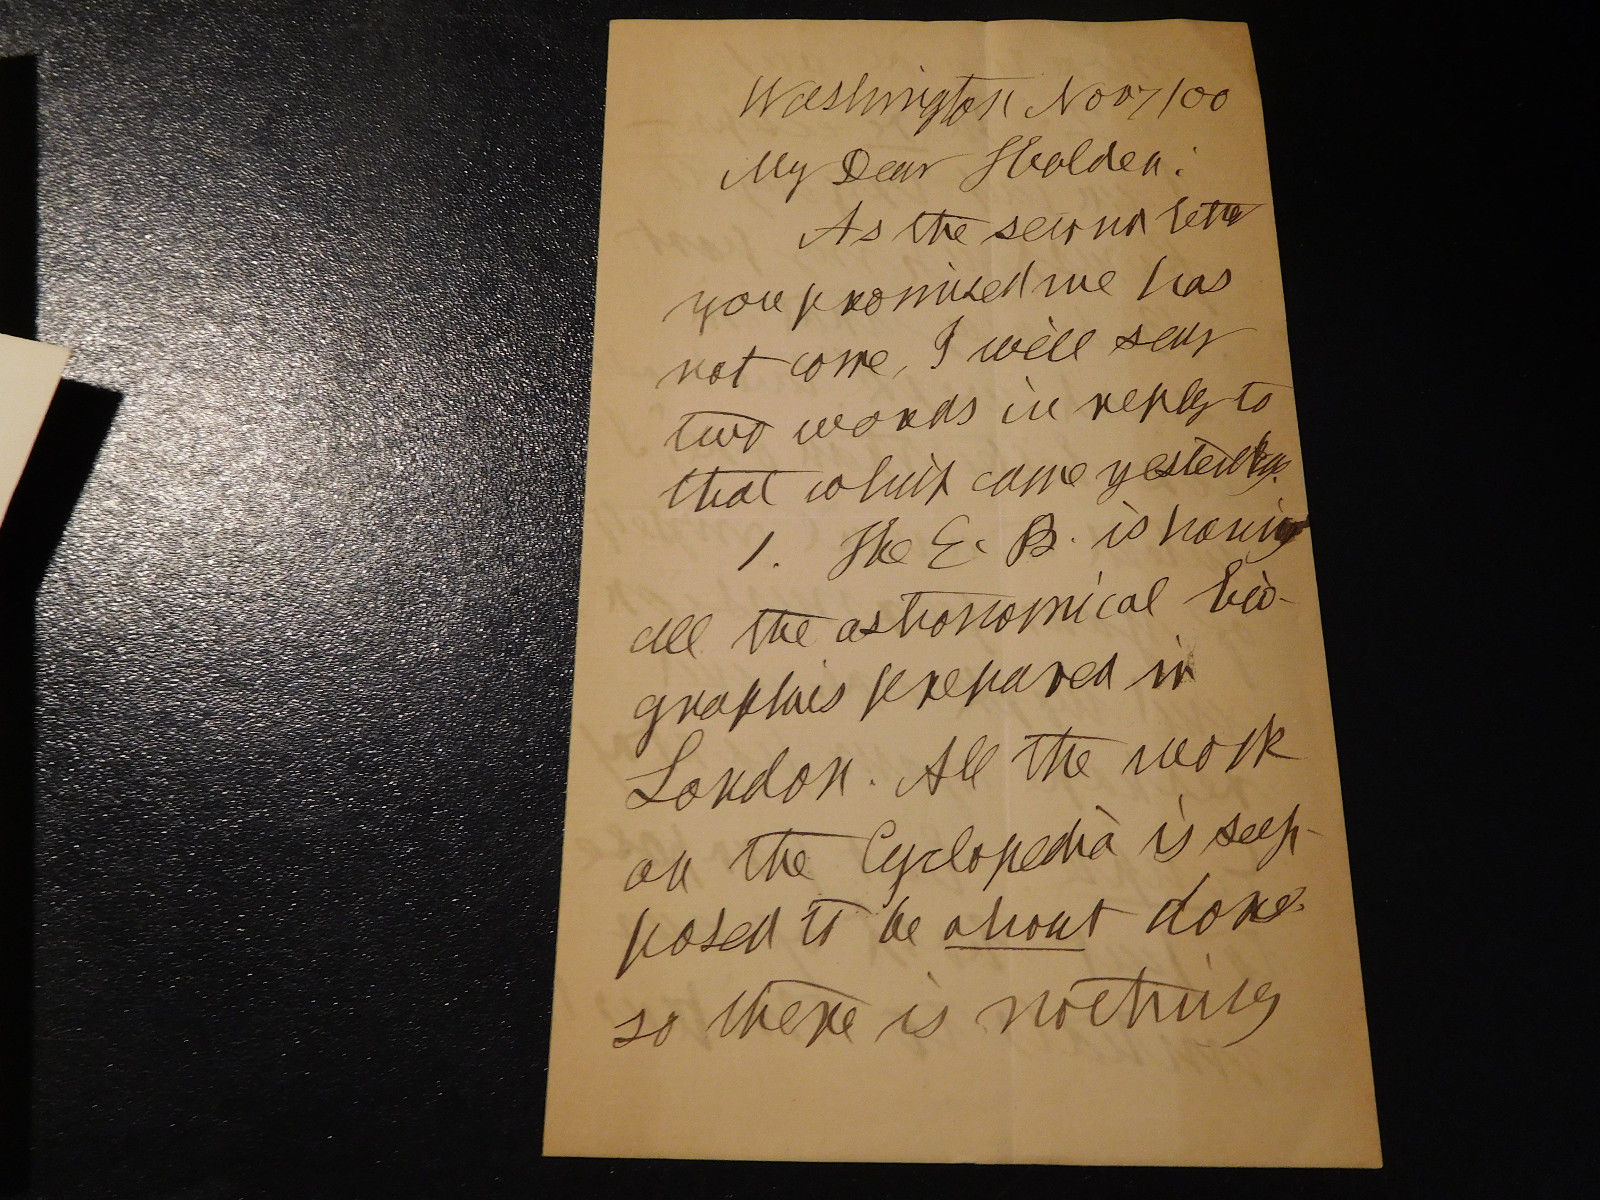 Washington Nov 7/00
My Dear Holden:
As the second letter
you promised me has
not come, I will say
two words in reply to
that which came yesterday.
1. The E. B. is having
all the astronomical bio-
graphies prepared in
London. All the work
on the Cyclopedia is sup-
posed to be about done
so there is nothing